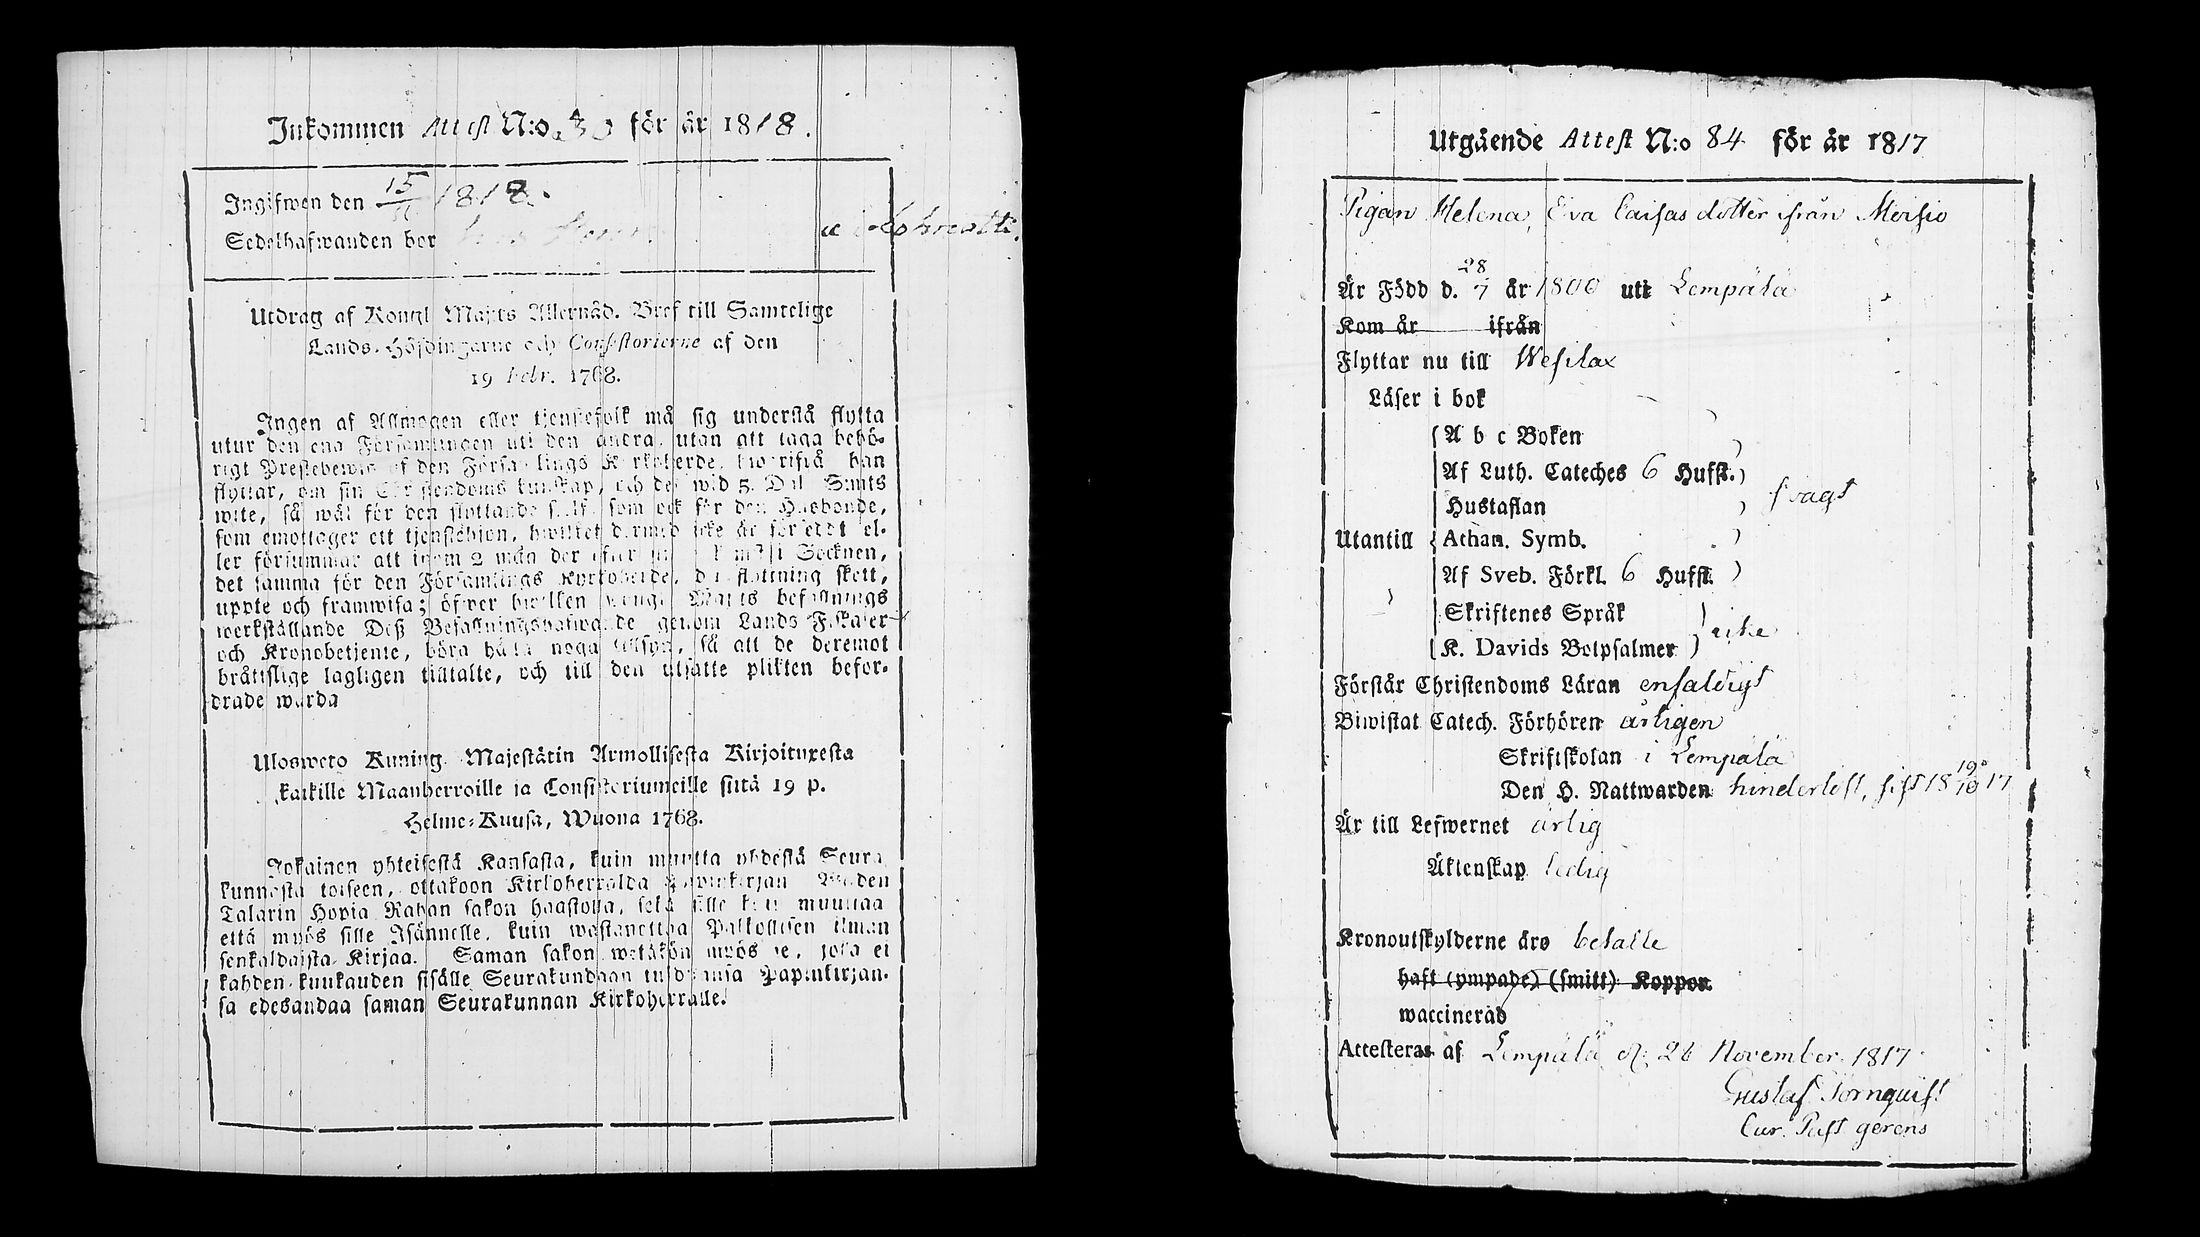 Inkommen Attest N:o 30 för år 1818.
Ingifwen den 15 1818.
Sedelhafwanden bor
Utdrag af Kongl Maj:ts Allernåd. Bref till Samtelige
Lands-Höfdingarne och Consistorierne af den
19 Febr. 1768.
Ingen af Allmogen eller tjenstefolk må sig understå flytta
utur den ena Församlingen uti den andra, utan att taga behö-
rigt Prestebewis af den Församlings Kyrkoherde, hwarifrå han
flyttar, om sin Christendoms kunskap, och det wid 5. Dal. Smts
wite, så wäl för den flyttande sielf, som ock för den Husbonde,
som emottager ett tjenstehjon, hwilket dermed icke är försedt el-
ler försummar att inom 2 mån der efter i Socknen,
det samma för den Församlings Kyrkoherde, flyttning skett,
uppte och framwisa; öfwer hwilken Kongl. Maj:ts befallnings
werkställande Deß Befallningshafwande genom Lands Fiskaler
och Kronobetjente, böra hafwa noga tillsyn, så att de deremot
bråttslige lagligen tilltalte, och till den utsatte plikten befor-
drade warda
Ulosweto Kuning. Majestätin Armollisesta Kirjoituxesta
kaikille Maanherroille ja Consistoriumeille siitä 19 p.
Helme-Kuusa, Wuona 1768.
Jokainen yhteisestä Kansasta, kuin muutta yhdestä Seura
kunnasta toiseen, ottakoon Kirkoherralda Papinkirjan Wiiden
Talarin Hopia Rahan sakon haastolla, sekä sille kuin muuttaa
että myös sille Isännelle, kuin wastanottaa Palkollisen ilman
senkaldaista Kirjaa. Saman sakon wetäkön myös se, joka ei
kahden kuukauden sisälle Seurakundaan tulduansa Papinkirjan-
sa edesandaa saman Seurakunnan Kirkoherralle.
Utgående Attest N:o 84 för år 1817
Pigan Helena, Eva Caisas dotter ifrån Moisio
Är Född d. 28/7 år 1800 uti Lempälä
Kom år ifrån
Flyttar nu till Wesilax
Läser i bok
A b c Boken
Af Luth. Cateches 6 Hufst.
Hustaflan
swagt
Utantill Athan. Symb.
Af Sveb. Förkl. 6 Hufst.
Skriftenes Språk
K. Davids Botpsalmer
icke
Förstår Christendoms Läran enfaldigt
Biwistat Catech. Förhören årligen
Skriftskolan i Lempälä
Den H. Nattwarden hinderlöst, sist 18 19/10 17
Är till Lefwernet ärlig
Äktenskap ledig
Kronoutskylderne äro betalte
haft (ympade) (smitt) Koppor
waccinerad
Attesteras af Lempälä d. 26 November 1817
Gustaf Törnquist
Cur. Past gerens